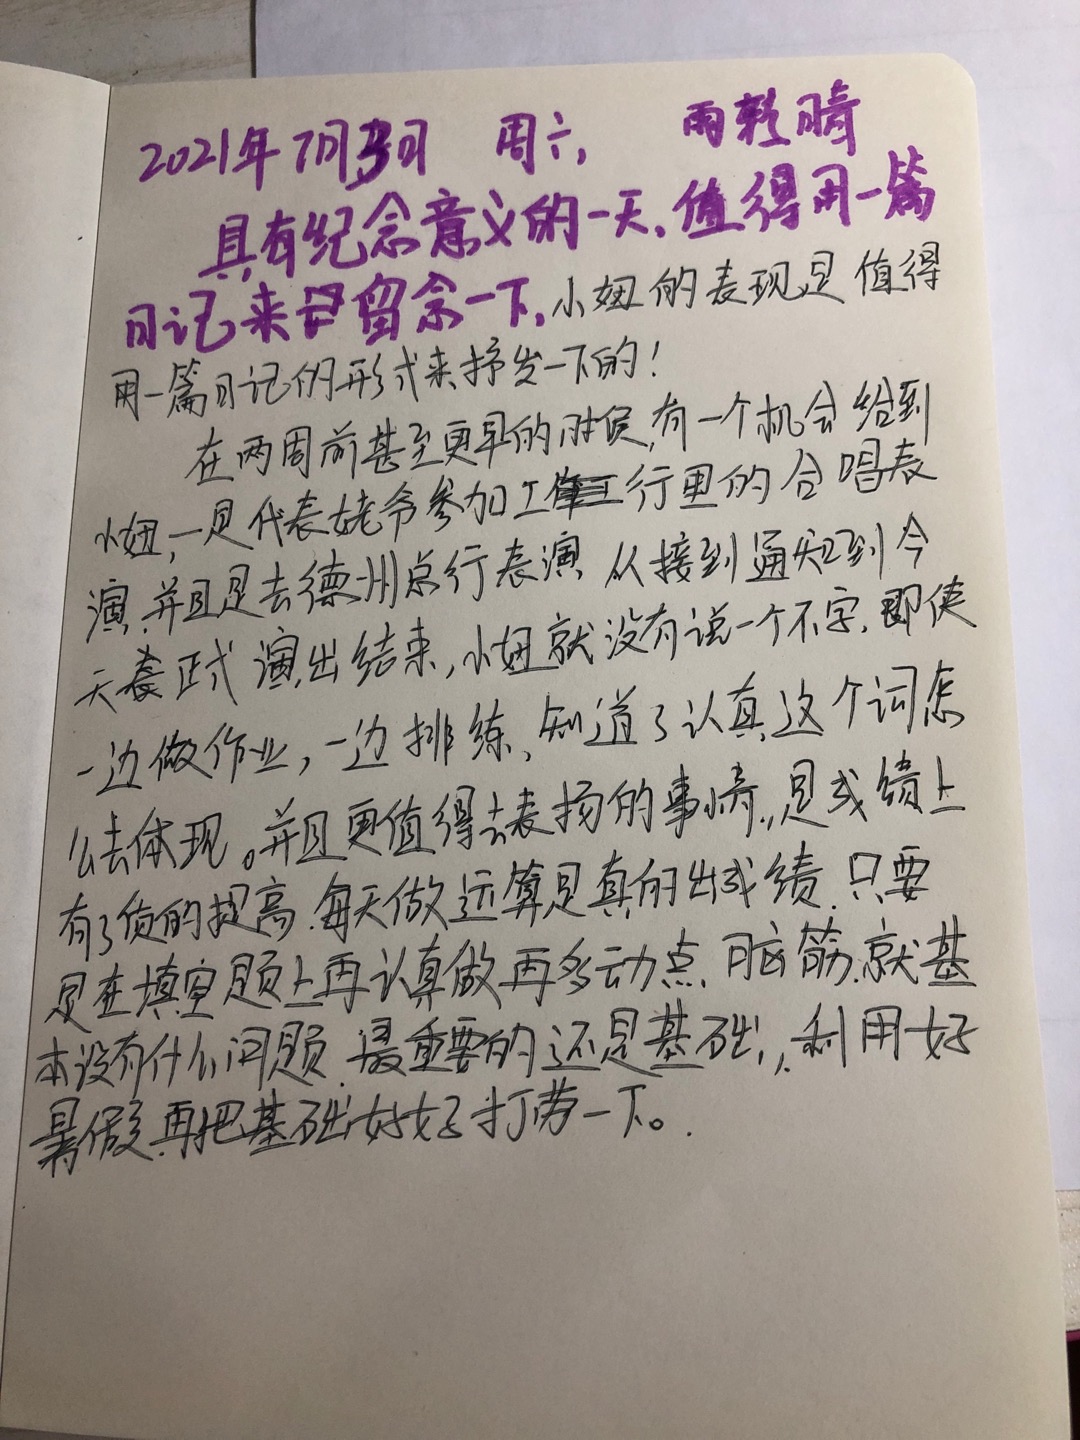 2021年7月3日 周六, 雨转晴
具有纪念意义的一天,值得用一篇
日记来留念一下,小妞的表现是值得
用一篇日记的形式来抒发一下的!
在两周前甚至更早的时候,有一个机会给到
小妞,一是代表姥爷参加工行里的合唱表
演,并且是去德州总行表演,从接到通知到今
天正式演出结束,小妞就没有说一个不字,即使
一边做作业,一边排练,知道了认真这个词怎
么去体现。并且更值得去表扬的事情,是成绩上
有了质的提高.每天做运算是真的出成绩.只要
是在填空题上再认真做再多动点,脑筋,就基
本没有什么问题.最重要的还是基础,利用好
暑假,再把基础好好打劳一下。